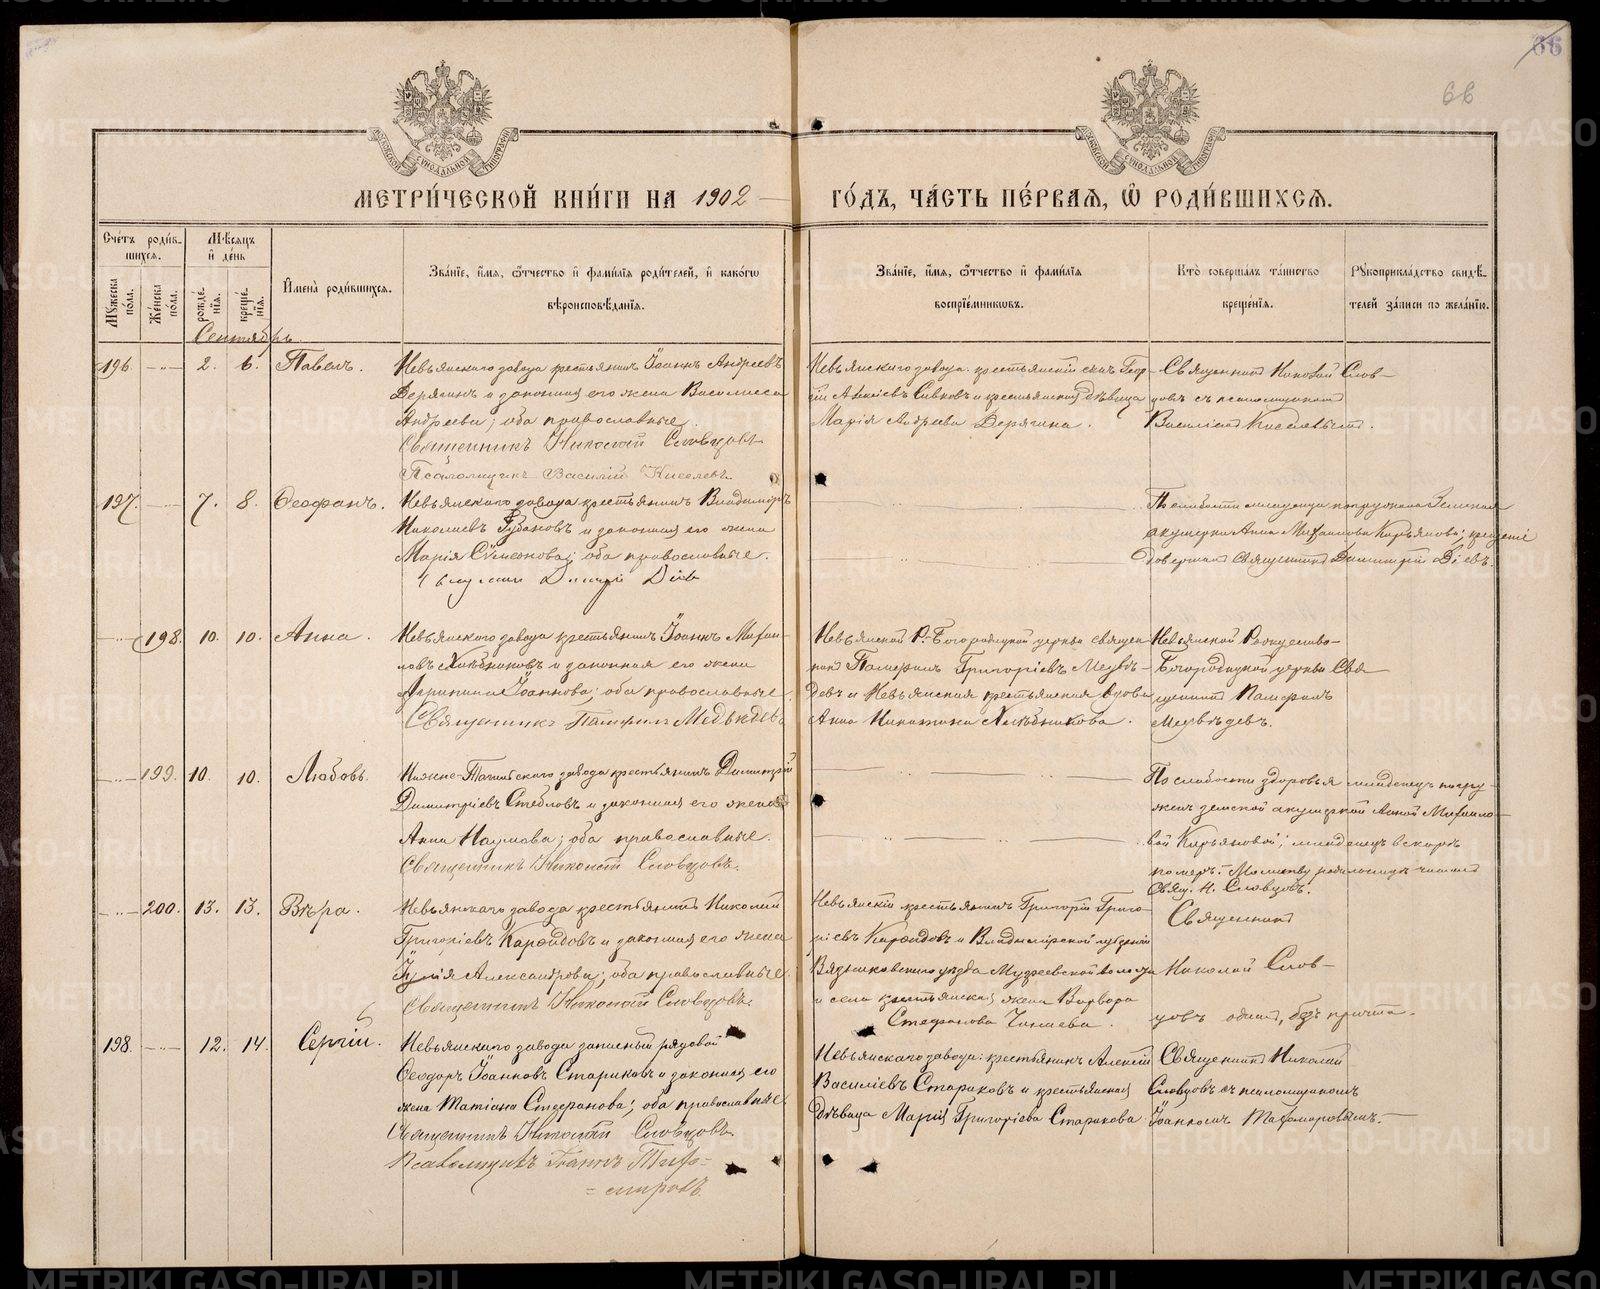 66
66
МЕТРИ́ЧЕСКОЙ КНИ́ГИ НА 1902
ГО́ДЪ, ЧА́СТЬ ПЕ́РВАѦ, Ѽ РОДИ́ВШИХСѦ.
Сче́тъ роди́в-
шихсѧ.
Мѣ́сѧцъ
и҆ де́нь
Мꙋ́жеска по́ла.
Же́нска по́ла.
рожде́нїѧ.
креще́нїѧ.
И҆мена̀ роди́вшихсѧ.
Зва́нїе, и҆́мѧ, ѻ҆́тчество и҆ фами́лїѧ роди́телей, и҆ како́гѡ
вѣроисповѣ́данїѧ.
Зва́нїе, и҆́мѧ, ѻ҆́тчество и҆ фами́лїѧ
воспрїе́мникѡвъ.
Кто̀ соверша́лъ та́инство
креще́нїѧ.
Рꙋкоприкла́дство свидѣ́-
телей за́писи по жела́нїю.
Сентябрь
196 2. 6. Павелъ.
Невьянскаго завода крестьянинъ Іоаннъ Андреевъ
Дерягинъ и законная его жена Василисса
Андреева; оба православные.
Священникъ Николай Словцовъ
Псаломщикъ Василій Киселевъ
Невьянскаго завода крестьянскій сынъ Геор-
гій Алексіевъ Сивковъ и крестьянская дѣвица
Марія Андреева Дерягина.
Священникъ Николай Слов-
цовъ съ псаломщикомъ
Василіемъ Киселевымъ.
197. 7. 8. Ѳеофанъ.
Невьянскаго завода крестьянинъ Владиміръ
Николаевъ и законная его жена
Марія Сѵмеонова; оба православные.
Димитрій Діевъ
По слабости младенца погружала Земская
акушерка Анна Михаилова Карьякова; крещеніе
довершилъ Священникъ Димитрій Діевъ.
198. 10. 10. Анна.
Невьянскаго завода крестьянинъ Іоаннъ Михаи-
ловъ Хлѣбниковъ и законная его жена
Агрипина Іоаннова; оба православные
Священникъ Памфилъ Медвѣдевъ
Невьянской Р.-Богородицкой церкви священ-
никъ Памфилъ Григоріевъ Медвѣ-
девъ и Невьянская крестьянская вдова
Анна Никитина Хлѣбникова.
Невьянской Рождество-
Богородицкой церкви Свя-
щенникъ Памфилъ
Медвѣдевъ.
199. 10. 10. Любовь.
Нижне-Тагильскаго завода крестьянинъ Димитрій
Димитріевъ Стебловъ и законная его жена
Анна Наумова; оба православные.
Священникъ Николай Словцовъ.
По слабости здоровья младенецъ погру-
женъ земской акушеркой Анной Михаило-
вой Карьяковой; младенецъ вскорѣ
померъ. Молитву родильницѣ читалъ
Свящ. Н. Словцовъ.
200. 13. 13. Вѣра.
Невьянскаго завода крестьянинъ Николай
Григоріевъ и законная его жена
Юлія Александрова; оба православные.
Священникъ Николай Словцовъ.
Невьянскій крестьянинъ Григорій Григо-
ріевъ и Владимірской губерніи
Вязниковскаго уѣзда волости
и села крестьянская жена Варвара
Стефанова
Священникъ
Николай Слов-
цовъ одинъ, безъ причта.
198. 12. 14. Сергій.
Невьянскаго завода запасный рядовой
Ѳеодоръ Іоанновъ Стариковъ и законная его
жена Татіана Стефанова; оба православные
Священникъ Николай Словцовъ.
Псаломщикъ Іоаннъ Тихо-
=
Невьянскаго завода: крестьянинъ Алексій
Василіевъ Стариковъ и крестьянская
дѣвица Марія Григоріева Старикова.
Священникъ Николай
Словцовъ съ псаломщикомъ
Іоанномъ